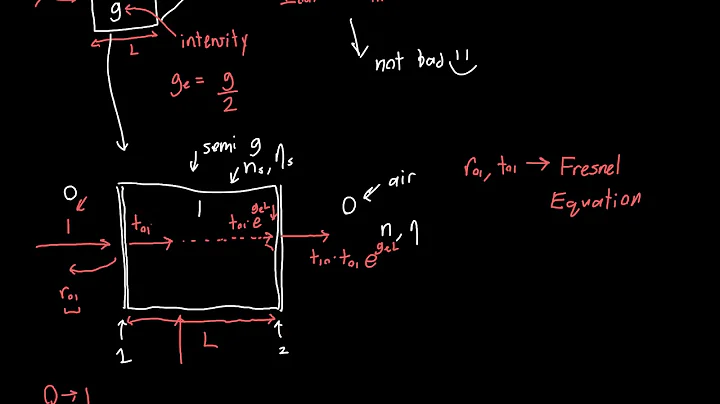 g
L
intensity
gₑ = g/2
not bad
semi g
nₛ, ηₛ
0
1
t₀₁
1
t₀₁·e^(gₑL)
r₀₁
0
air
n, η
t₁₀·t₀₁ e^(gₑL)
r₀₁, t₀₁ → Fresnel
Equation
L
1
2
0→1